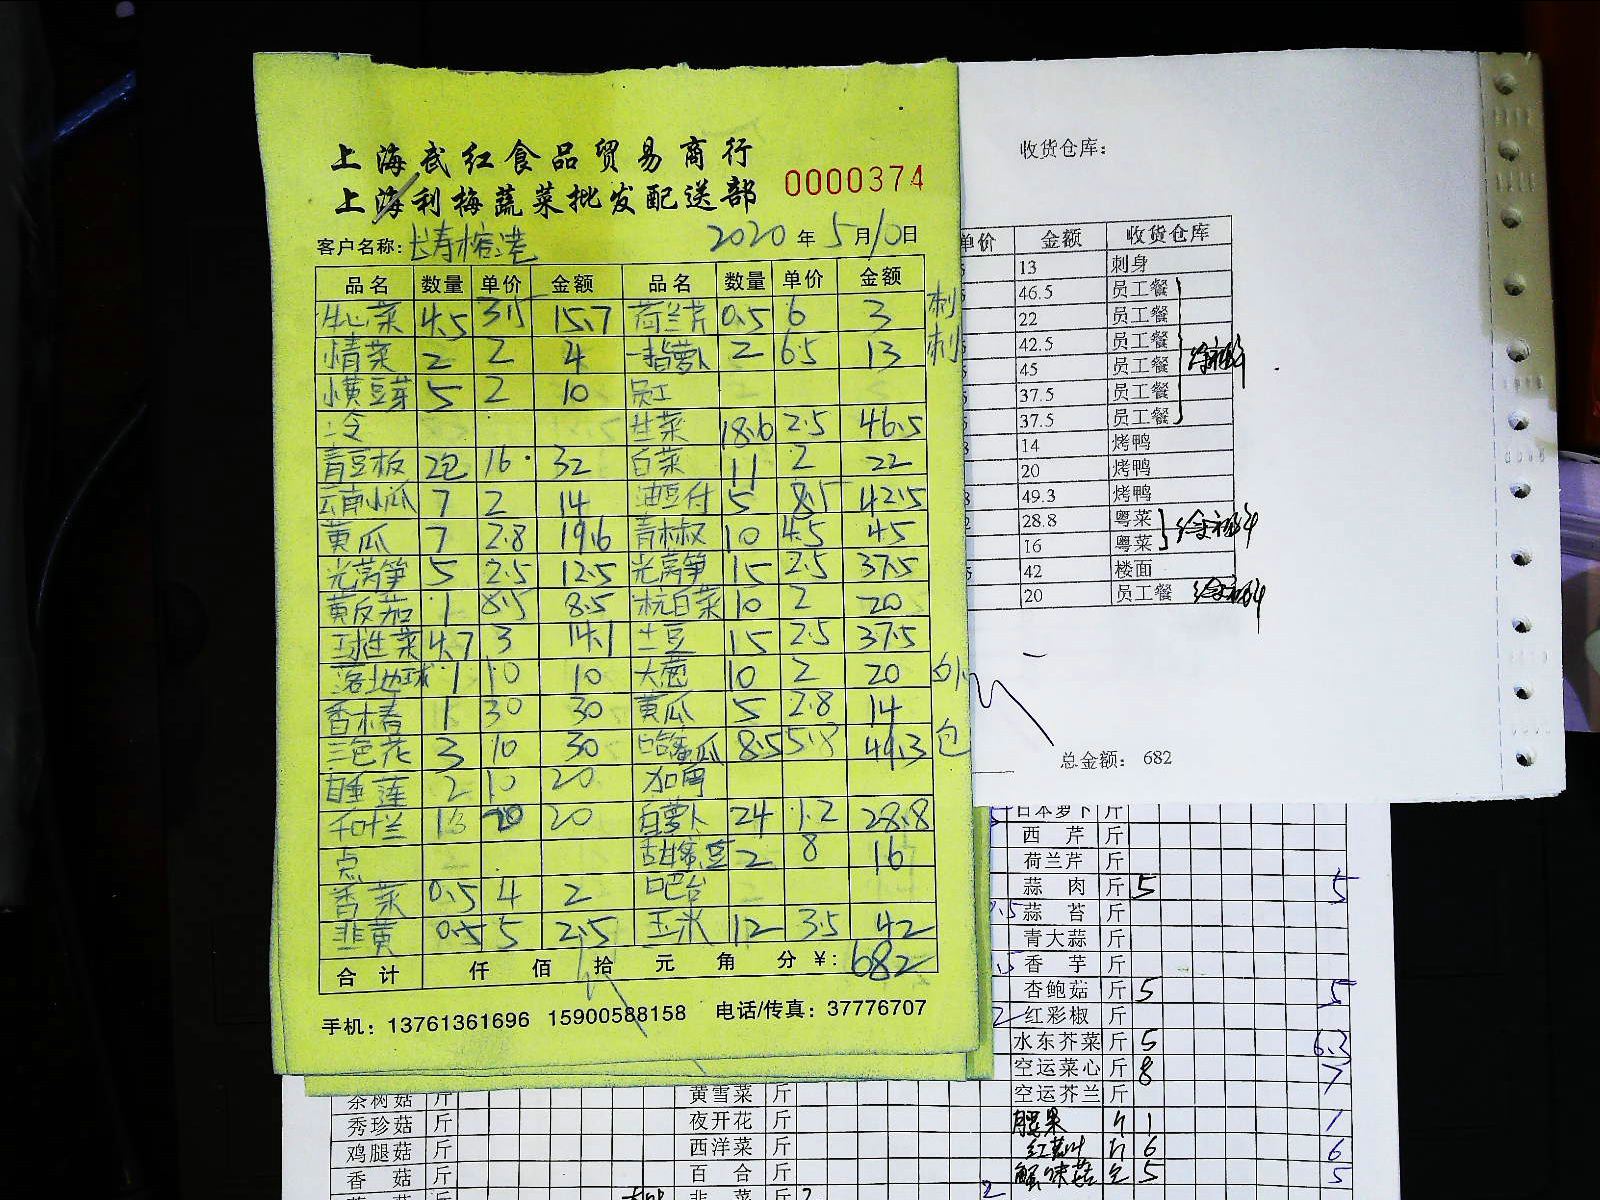 上海武红食品贸易商行
上海利梅蔬菜批发配送部 0000374
客户名称: 长寿榕港 2020年5月10日
品名 数量 单价 金额 品名 数量 单价 金额
牛心菜 4.5 3.5 15.7 荷兰芹 0.5 6 3 刺
小青菜 2 2 4 一指萝卜 2 6.5 13 刺
小黄豆芽 5 2 10 员工
冷 生菜 18.6 2.5 46.5
青豆板 2包 16 32 白菜 11 2 22
云南小瓜 7 2 14 油豆付 5 8.5 42.5
黄瓜 7 2.8 19.6 青椒 10 4.5 45
光莴笋 5 2.5 12.5 光莴笋 15 2.5 37.5
黄皮茄 1 8.5 8.5 杭白菜 10 2 20
球生菜 4.7 3 14.1 土豆 15 2.5 37.5
落地球 1 10 10 大葱 10 2 20
香椿 1 30 30 黄瓜 5 2.8 14
三色花 3 10 30 哈蜜瓜 8.5 5.8 49.3 包
睡莲 2 10 20
千叶兰 1 20 20 白萝卜 24 1.2 28.8
点 甜蜜豆 2 8 16
香菜 0.5 4 2 吧台
韭黄 0.5 5 2.5 玉米 12 3.5 42
合计 仟 佰 拾 元 角 分 ¥: 682
手机: 13761361696 15900588158 电话/传真: 37776707
收货仓库:
单价 金额 收货仓库
13 刺身
46.5 员工餐
22 员工餐
42.5 员工餐
45 员工餐
37.5 员工餐
37.5 员工餐
14 烤鸭
20 烤鸭
49.3 烤鸭
28.8 粤菜
16 粤菜
42 楼面
20 员工餐
总金额: 682
日本萝卜 斤
西芹 斤
荷兰芹 斤
蒜肉 斤 5 5
蒜苔 斤
青大蒜 斤
香芋 斤
杏鲍菇 斤 5 5
红彩椒 斤
水东芥菜 斤 5 6.3
空运菜心 斤 8 7
茶树菇 斤 黄雪菜 斤 空运芥兰 斤
秀珍菇 斤 夜开花 斤 腰果 斤 1 1
鸡腿菇 斤 西洋菜 斤 6 6
香菇 斤 百合 斤 蟹味菇 5 5
韭菜 斤 2 2